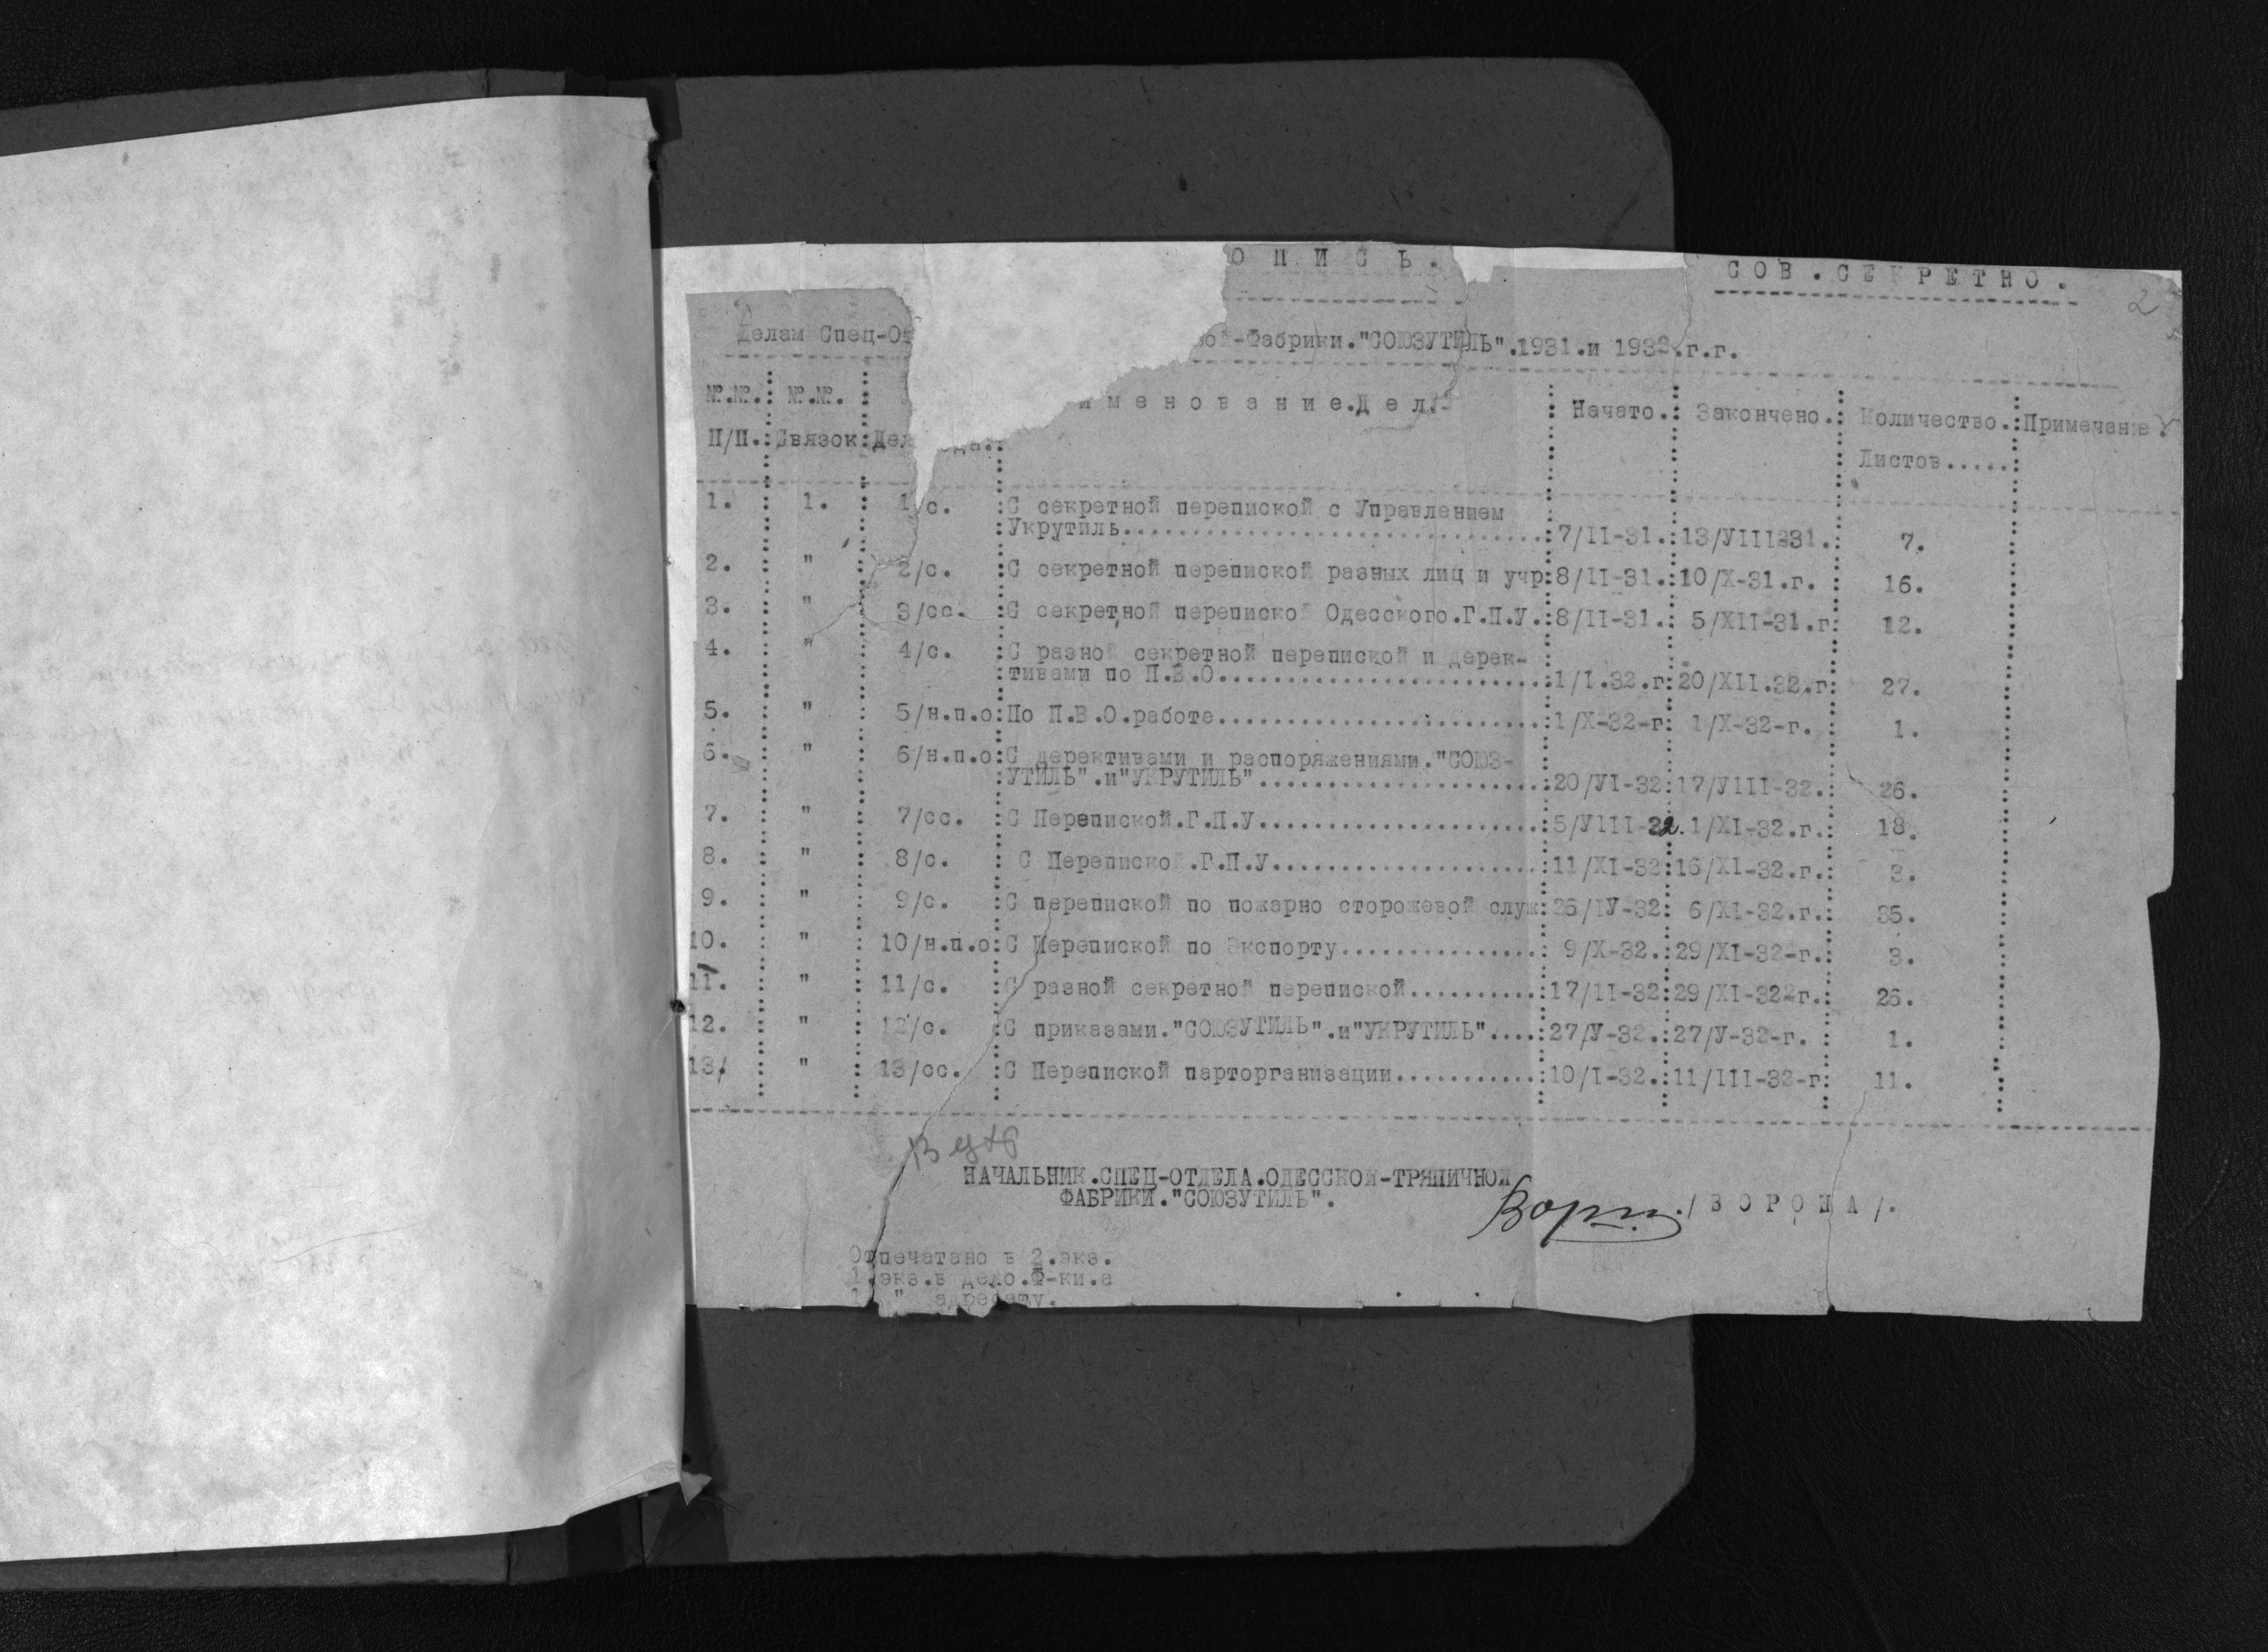 О П И С Ь .
СОВ.СЕКРЕТНО.
2
Делам Спец-От
вой-Фабрики."СОЮЗУТИЛЬ".1931.и 1932.г.г.
№.№. №.№. именование.Дел. Начато. Закончено. Количество. Примечание.
П/П. Связок Дел Листов.....
1. 1. 1/с. С секретной перепиской с Управлением
Укрутиль................................ 7/II-31. 13/УIII-31. 7.
2. " 2/с. С секретной перепиской разных лиц и учр 8/II-31. 10/X-31.г. 16.
3. " 3/сс. С секретной переписко Одесского.Г.П.У. 8/II-31. 5/XII-31.г 12.
4. " 4/с. С разно секретной перепиской и дерек-
тивами по П.В.О......................... 1/I.32.г 20/XII.32.г 27.
5. " 5/н.п.о По П.В.О.работе......................... 1/X-32-г 1/X-32-г. 1.
6. " 6/н.п.о С дерективами и распоряжениями."СОЮЗ-
УТИЛЬ".и"УКРУТИЛЬ"...................... 20/УI-32 17/УIII-32. 26.
7. " 7/сс. С Перепиской.Г.П.У...................... 5/УIII-32. 1/XI-32.г. 18.
8. " 8/с. С Переписко .Г.П.У..................... 11/XI-32 16/XI-32.г. 3.
9. " 9/с. С перепиской по пожарно сторожевой служ 26/IУ-32 6/XI-32.г. 35.
10. " 10/н.п.о С Перепиской по Экспорту................ 9/X-32. 29/XI-32-г. 3.
11. " 11/с. С разной секретной перепиской........... 17/II-32 29/XI-32г. 26.
12. " 12/с. С приказами."СОЮЗУТИЛЬ".и"УКРУТИЛЬ".... 27/У-32. 27/У-32-г. 1.
13/ " 13/сс. С Перепиской парторганизации............ 10/I-32. 11/III-32-г 11.
НАЧАЛЬНИК.СПЕЦ-ОТДЕЛА.ОДЕССКОЙ-ТРЯПИЧНОЙ
ФАБРИКИ."СОЮЗУТИЛЬ". ./ В О Р О Н А /.
Отпечатано в 2.экз.
1.экз.в дело.Ф-ки.а
1 " адресату.